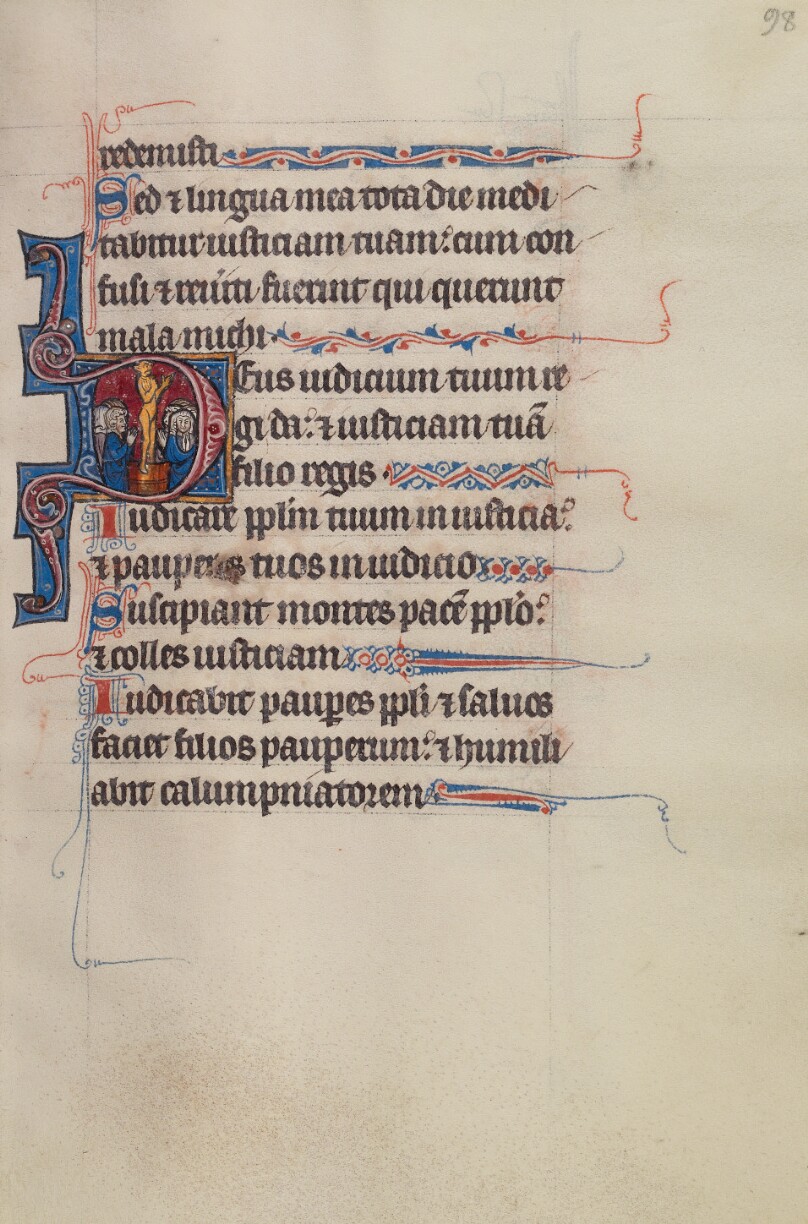 98
redemisti
Sed ⁊ lingua mea tota die medi
tabitur iusticiam tuam: cum con
fusi ⁊ reũiti fuerint qui querunt
mala michi.
Deus iudicium tuum re
gi da: ⁊ iusticiam tuã
filio regis.
Iudicare pp̄lm tuum in iusticia:
⁊ pauperes tuos in iudicio
Suscipiant montes pacẽ pp̄lo:
⁊ colles iusticiam
Iudicabit paup̲es pp̄li ⁊ saluos
faciet filios pauperum: ⁊ humili
abit calumpniatorem